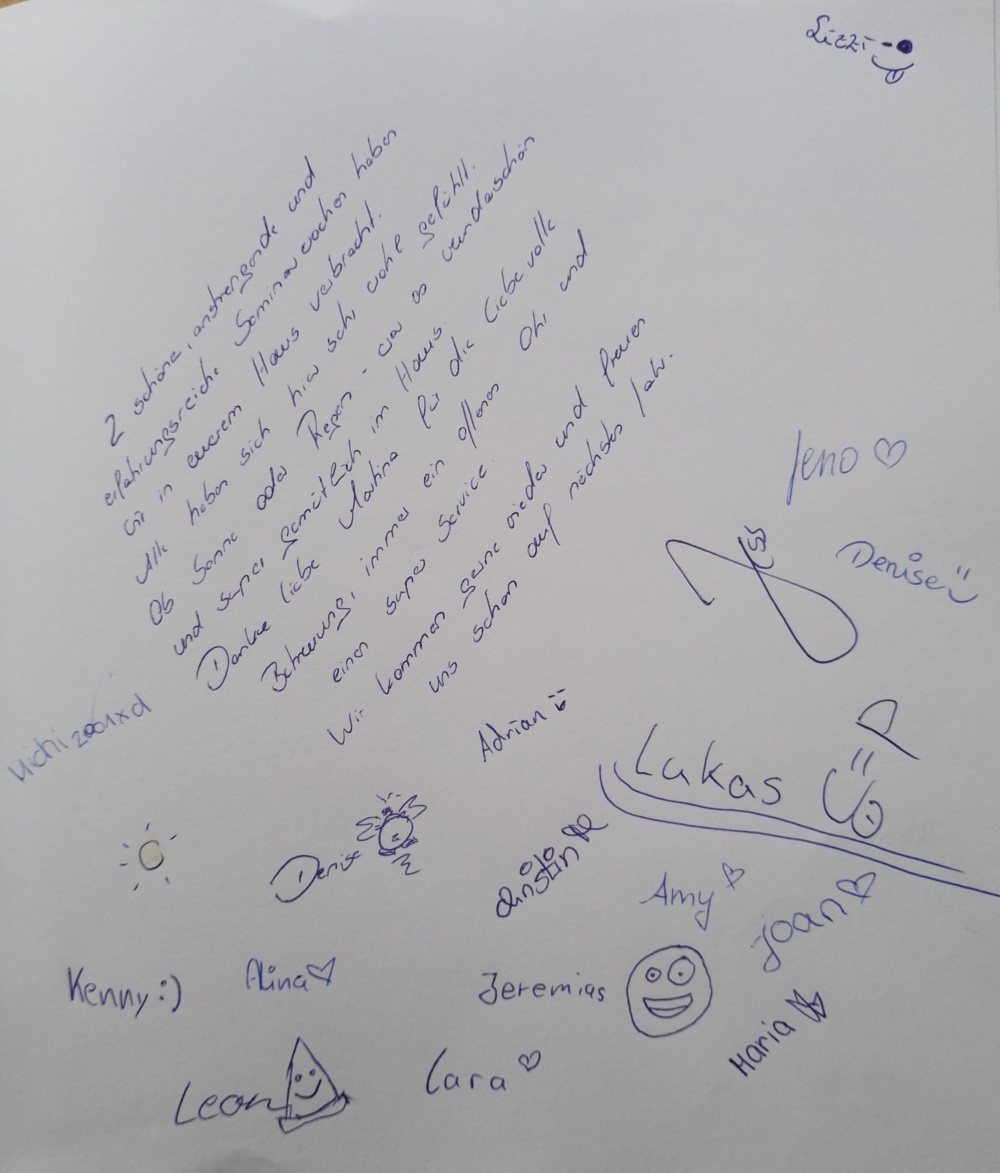 Lizzi
2 schöne, anstrengende und
erfahrungsreiche Seminarwochen haben
wir in eurem Haus verbracht.
Alle haben sich hier sehr wohl gefühlt.
Ob Sonne oder Regen - war es wunderschön
und super gemütlich im Haus.
Danke liebe Martina für die liebevolle
Betreuung, immer ein offenes Ohr und
einen super Service.
Wir kommen gerne wieder und freuen
uns schon auf nächstes Jahr.
Jeno ♡
Denise
Michi2001xd
Adrian
Lukas
Denise
Christin
Amy ♡
Joan ♡
Kenny :)
Alina ♡
Jeremias
Maria
Leon
Lara ♡